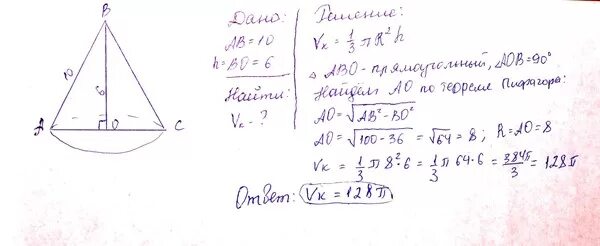 B
10
6
A
O
C
Дано:
AB=10
h=BO=6
Найти:
Vк - ?
Решение:
Vк = 1/3 πR² h
△ ABO - прямоугольный, ∠AOB=90°
Найдём AO по теореме Пифагора:
AO = √(AB² - BO²)
AO = √(100-36) = √64 = 8; R=AO=8
Vк = 1/3 π 8²·6 = 1/3 π 64·6 = 384π/3 = 128π
Ответ: Vк = 128π